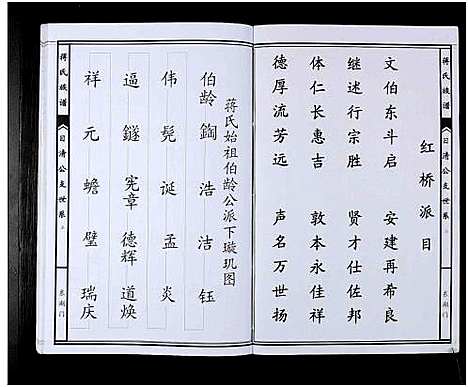 蒋氏族谱
日清公支世系
东湖门
红桥派目
文伯东斗启 安建再希良
继述行宗胜 贤才仕佐邦
体仁长惠吉 敦本永佳祥
德厚流芳远 声名万世扬
蒋氏始祖伯龄公派下璇玑图
伯龄 鋾 浩 洁 钰
伟 髡 诞 孟 炎
逼 鐩 宪章 德辉 道焕
祥 元 蟾 璧 瑞庆
蒋氏族谱
日清公支世系
东湖门